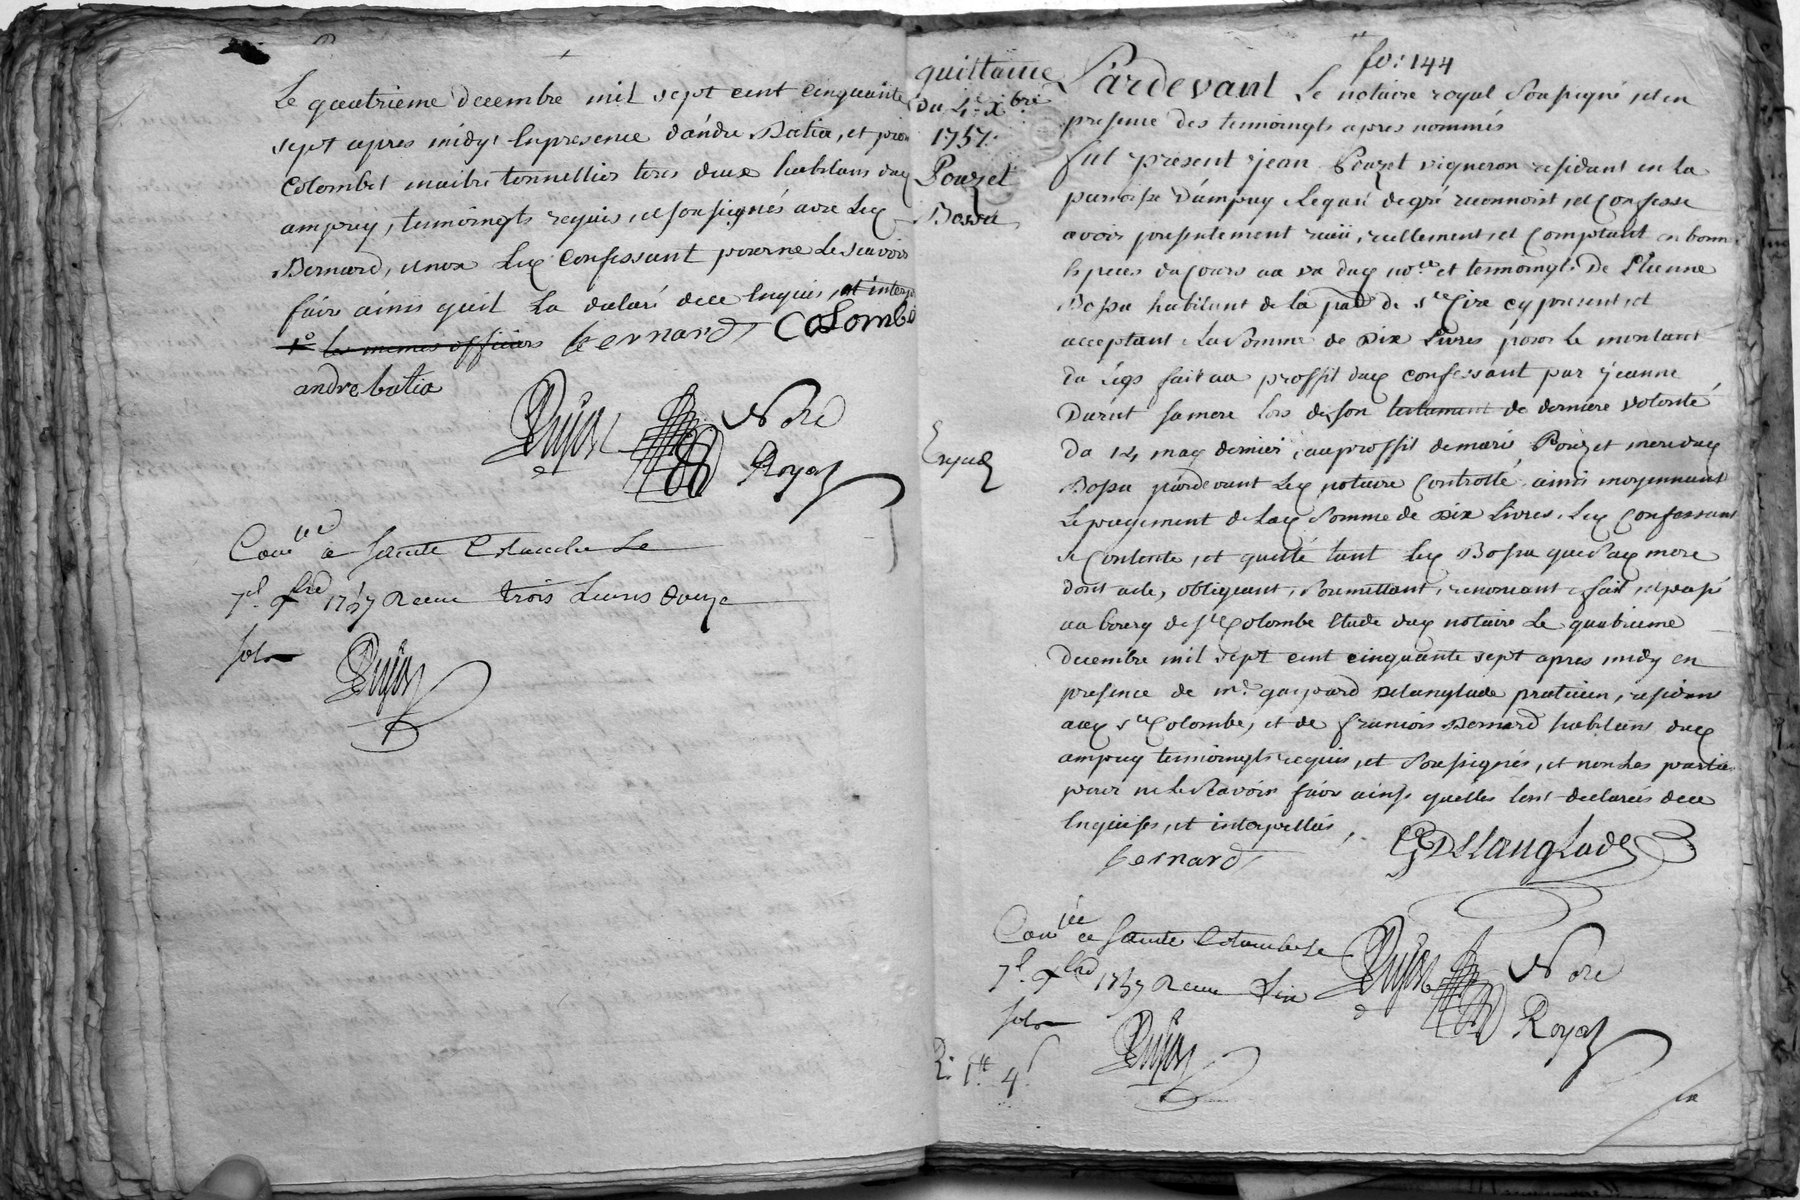 Le quatrieme decembre mil sept cent cinquante
sept apres midy En presence d'andre Batia, et
Colombet maitre tonnellier tous deux habitans dud
ampuy, temoingts requis, et soussignés avec led
Bernard, et non led Confessant pour ne le scavoir
faire ainsi quil la declaré de ce Enquis, et interp
les memes officiers bernard Colombe
andre batia
Dujast Nore
Royal
Con lé a sainte Colombe Le
7e Xbre 1757 Recu trois Livres douze
sols
Dujast
fo: 144
quittance
du 4e Xbre
1757.
Pouzet
Bossu
Exped
Pardevant Le notaire royal soussigné, et en
presence des temoingts apres nommés
fut present jean Pouzet vigneron residant en la
parroisse d'ampuy Lequel de gré reconnoit, et Confesse
avoir presentement recu, reellement, et Comptant en bonnes
Especes du Cours au vu dud nore et temoingts De Etienne
Bossu habitant de la passe de ste Cire cy present, et
acceptant La Somme de Dix Livres pour le montant
du Legs fait au proffit dud confessant par jeanne
Duret sa mere lors de son testament de derniere volonté
du 14 may dernier, au proffit de marie Pouzet mere dud
Bossu pardevant Led notaire Controllé, ainsi moyennant
Le payement de Lad somme de Dix Livres, Led Confessant
se Contente, et quitte tant led Bossu que sad mere
dont acte, obligeant, soumettant, renoncant, fait, et passé
au bourg de ste Colombe Etude dud notaire Le quatrieme
decembre mil sept cent cinquante sept apres midy en
presence de mr. gaspard Delanglade praticien, residant
aud ste Colombe, et de francois Bernard habitant dud
ampuy temoingts requis, et soussignés, et non les parties
pour ne le scavoir faire ainsi quelles lont declarées de ce
Enquises, et interpellées,
bernard GDelanglade
Con lée a sainte Colombe Le
7e Xbre 1757 Recu Six
sols
Dujast Nore
Royal
Dujast
R. 1tt 4s